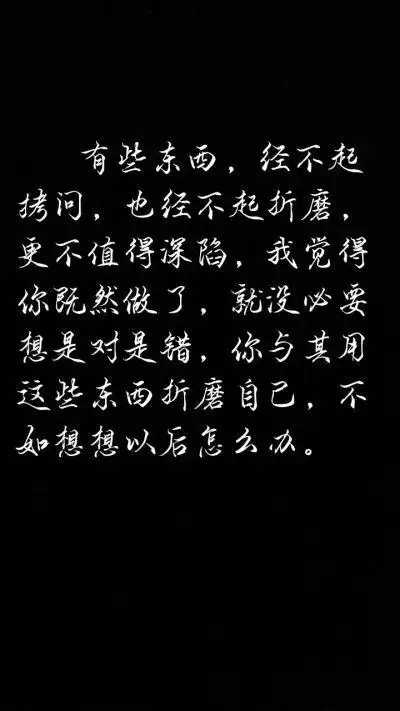 有些东西，经不起
拷问，也经不起折磨，
更不值得深陷，我觉得
你既然做了，就没必要
想是对是错，你与其用
这些东西折磨自己，不
如想想以后怎么办。